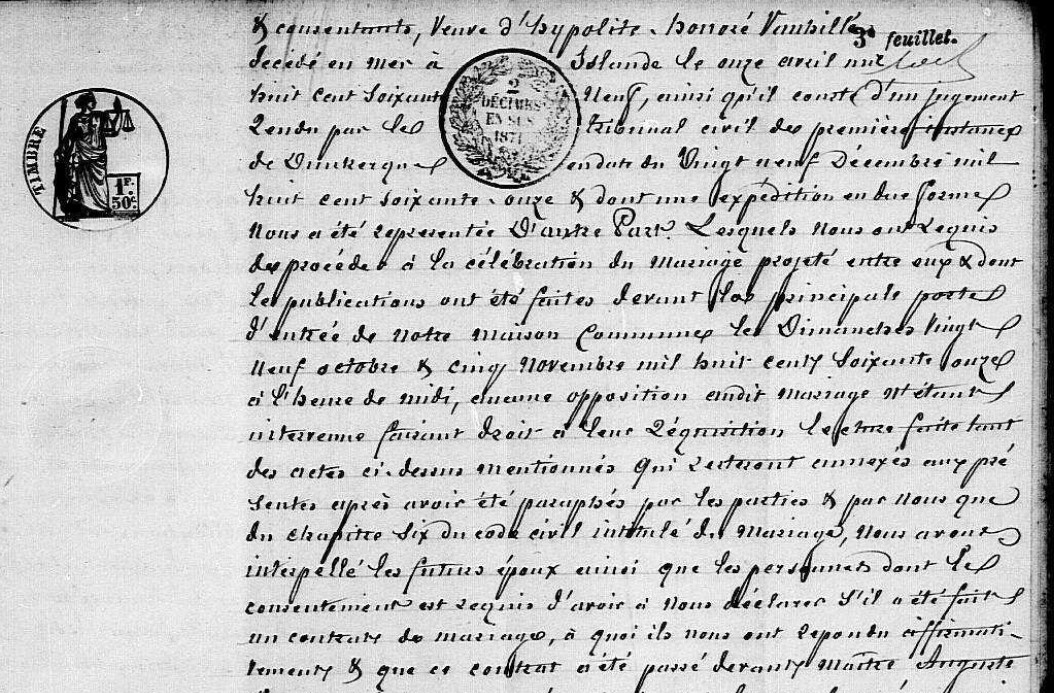 & consentante, Veuve d'hypolite honoré Vanhille
3e feuillet.
décédé en mer à Islande le onze avril mil
huit cent soixante Neuf, ainsi qu'il conste d'un jugement
Rendu par le tribunal civil de première instance
de Dunkerque en date du Vingt neuf Décembre mil
huit cent soixante-onze & dont une expédition en due forme
Nous a été représentée D'autre Part. Lesquels Nous ont Requis
de procéder à la célébration du mariage projeté entre eux & dont
les publications ont été faites devant la principale porte
d'entrée de notre maison Commune les Dimanches Vingt
Neuf octobre & cinq Novembre mil huit cent soixante onze
à l'heure de midi, aucune opposition audit mariage n'étant
intervenue faisant droit à leur Réquisition lecture faite tant
des actes ci-dessus mentionnés qui resteront annexés aux pré
sentes après avoir été paraphés par les parties & par Nous que
du chapitre Six du code civil intitulé du Mariage, Nous avons
interpellé les futurs époux ainsi que les personnes dont le
consentement est requis d'avoir à Nous déclarer s'il a été fait
un contrat de mariage, à quoi ils nous ont répondu affirmati-
vement & que ce contrat a été passé devant Maître Auguste
TIMBRE
1F.
50c.
2
DÉCIMES
EN SUS
1871